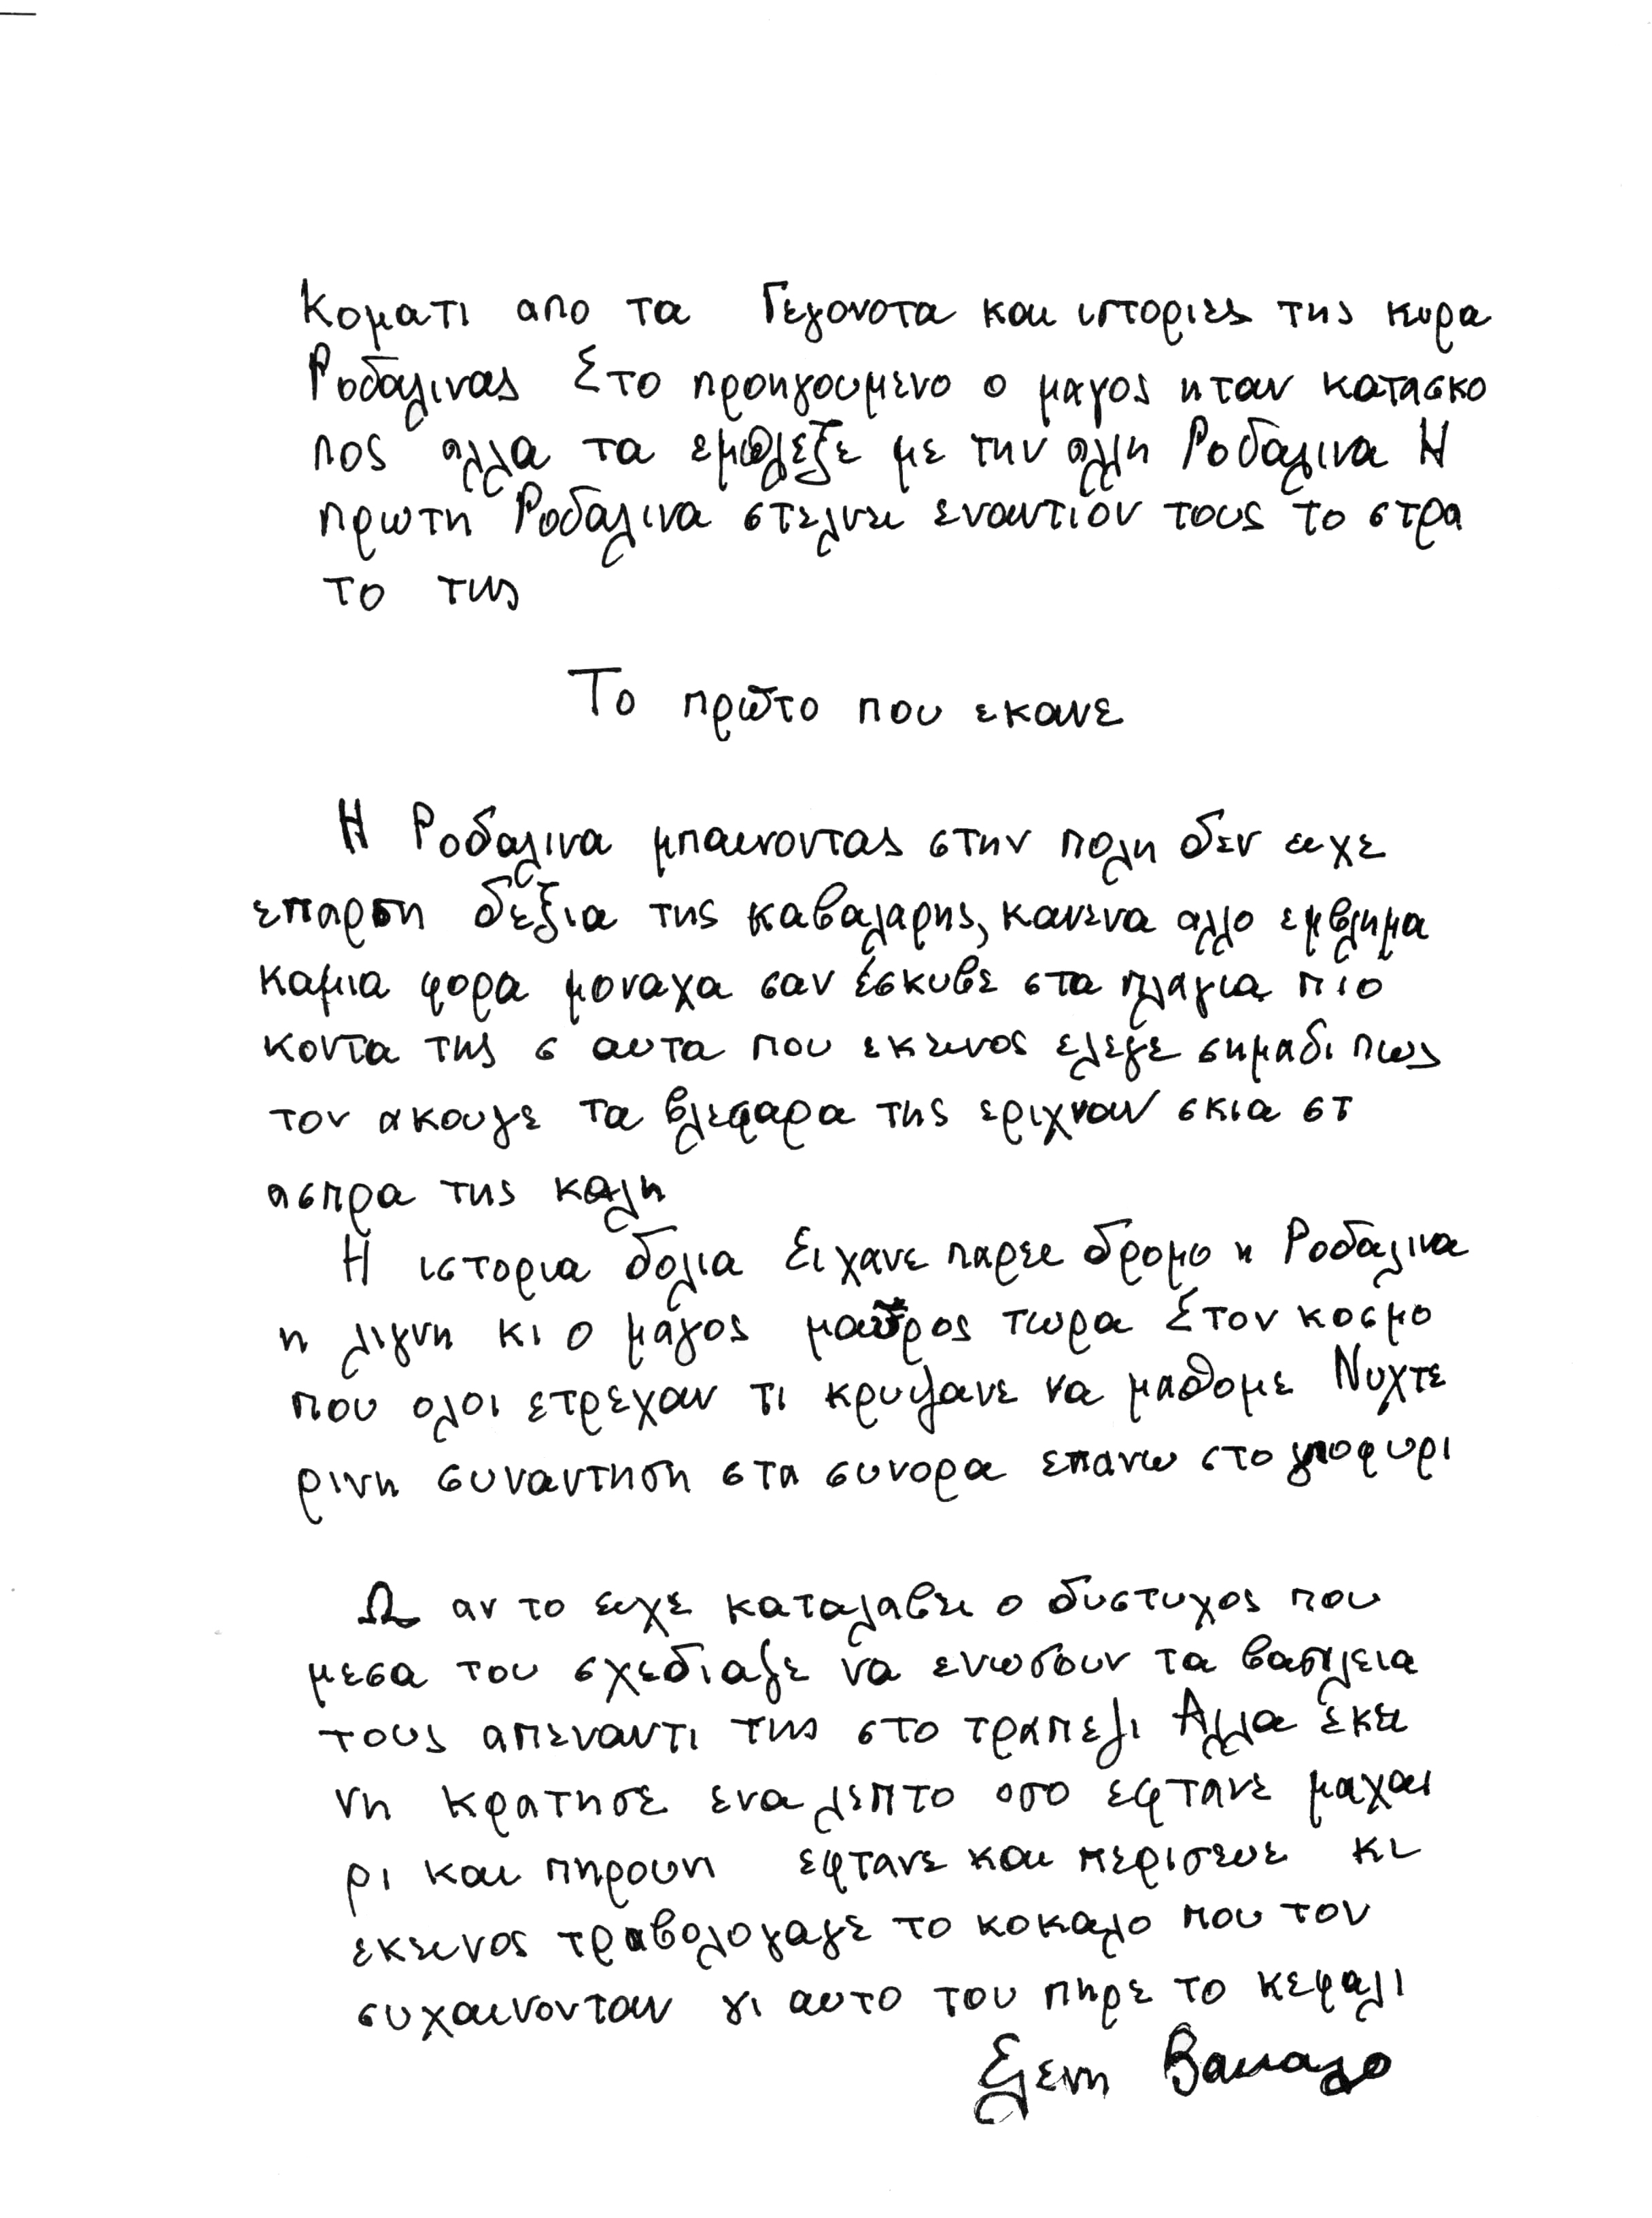 Κοματι απο τα Γεγονοτα και ιστοριες της κυρα
Ροδαλινας Στο προηγουμενο ο μαγος ηταν κατασκο
πος αλλα τα εμπλεξε με την αλλη Ροδαλινα Η
πρωτη Ροδαλινα στελνει εναντιον τους το στρα
το της
Το πρωτο που εκανε
Η Ροδαλινα μπαινοντας στην πολη δεν ειχε
επαρση δεξια της καβαλαρης, κανενα αλλο εμβλημα
καμια φορα μοναχα σαν έσκυβε στα πλαγια πιο
κοντα της σ αυτα που εκεινος ελεγε σημαδι πως
τον ακουγε τα βλεφαρα της εριχναν σκια στ
ασπρα της καλη
Η ιστορια δολια Ειχανε παρει δρομο η Ροδαλινα
η λιγνη κι ο μαγος μαυρος τωρα Στον κοσμο
που ολοι ετρεχαν τι κρυψανε να μαθομε Νυχτε
ρινη συναντηση στα συνορα επανω στο γιοφυρι
Ω αν το ειχε καταλαβει ο δυστυχος που
μεσα του σχεδιαζε να ενωσουν τα βασιλεια
τους απεναντι της στο τραπεζι Αλλα εκει
νη κρατησε ενα λεπτο οσο εφτανε μαχαι
ρι και πηρουνι εφτανε και περισευε κι
εκεινος τραβολογαγε το κοκαλο που τον
συχαινονταν γι αυτο του πηρε το κεφαλι
Ελενη Βακαλο